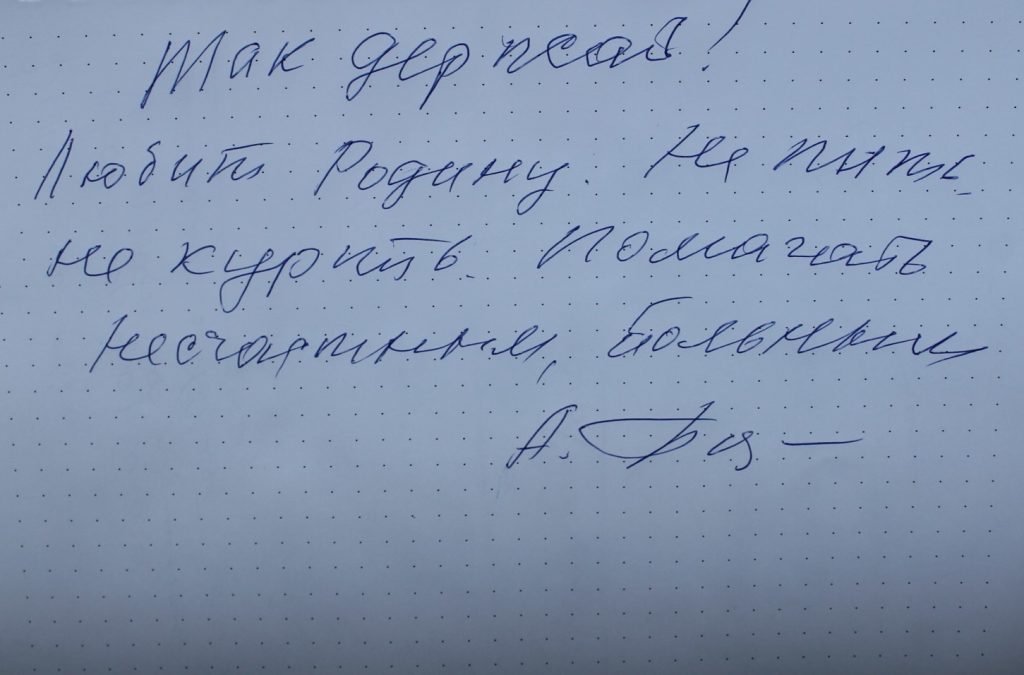 Так держать!
Любить Родину. Не пить,
не курить. Помагать
несчастным, больным
А.